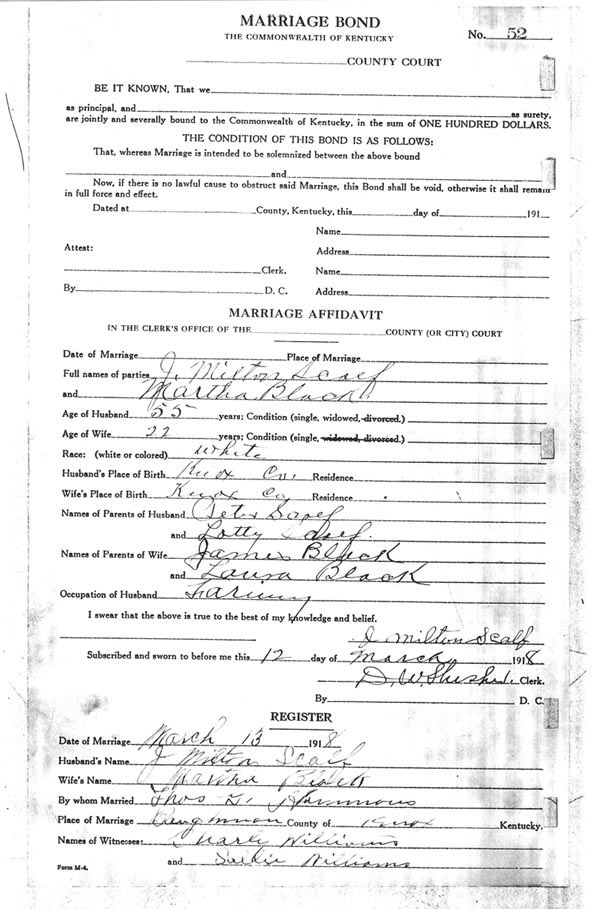 MARRIAGE BOND
THE COMMONWEALTH OF KENTUCKY
No. 52
COUNTY COURT
BE IT KNOWN, That we
as principal, and as surety,
are jointly and severally bound to the Commonwealth of Kentucky, in the sum of ONE HUNDRED DOLLARS.
THE CONDITION OF THIS BOND IS AS FOLLOWS:
That, whereas Marriage is intended to be solemnized between the above bound
and
Now, if there is no lawful cause to obstruct said Marriage, this Bond shall be void, otherwise it shall remain
in full force and effect.
Dated at County, Kentucky, this day of 191
Name
Attest: Address
Clerk. Name
By D. C. Address
MARRIAGE AFFIDAVIT
IN THE CLERK'S OFFICE OF THE COUNTY (OR CITY) COURT
Date of Marriage Place of Marriage
Full names of parties J. Milton Scalf
and Martha Black
Age of Husband 55 years; Condition (single, widowed, divorced.)
Age of Wife 22 years; Condition (single, widowed, divorced.)
Race: (white or colored) White
Husband's Place of Birth Knox Co. Residence
Wife's Place of Birth Knox Co Residence
Names of Parents of Husband Peter Scalf
and Lotty Scalf
Names of Parents of Wife James Black
and Laura Black
Occupation of Husband Farming
I swear that the above is true to the best of my knowledge and belief.
J. Milton Scalf
Subscribed and sworn to before me this 12 day of March 1918
D. W. Clerk.
By D. C.
REGISTER
Date of Marriage March 13 1918
Husband's Name J Milton Scalf
Wife's Name Martha
By whom Married Thos
Place of Marriage County of Knox Kentucky.
Names of Witnesses: Charly Williams
and Sallie Williams
Form M-4.